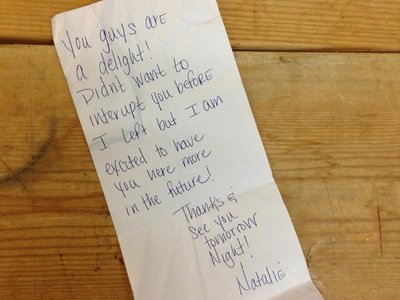 You guys are
a delight!
Didnt want to
interupt you before
I left but I am
excited to have
you here more
in the future!
Thanks &
see you
tomorrow
Night!
Natalie